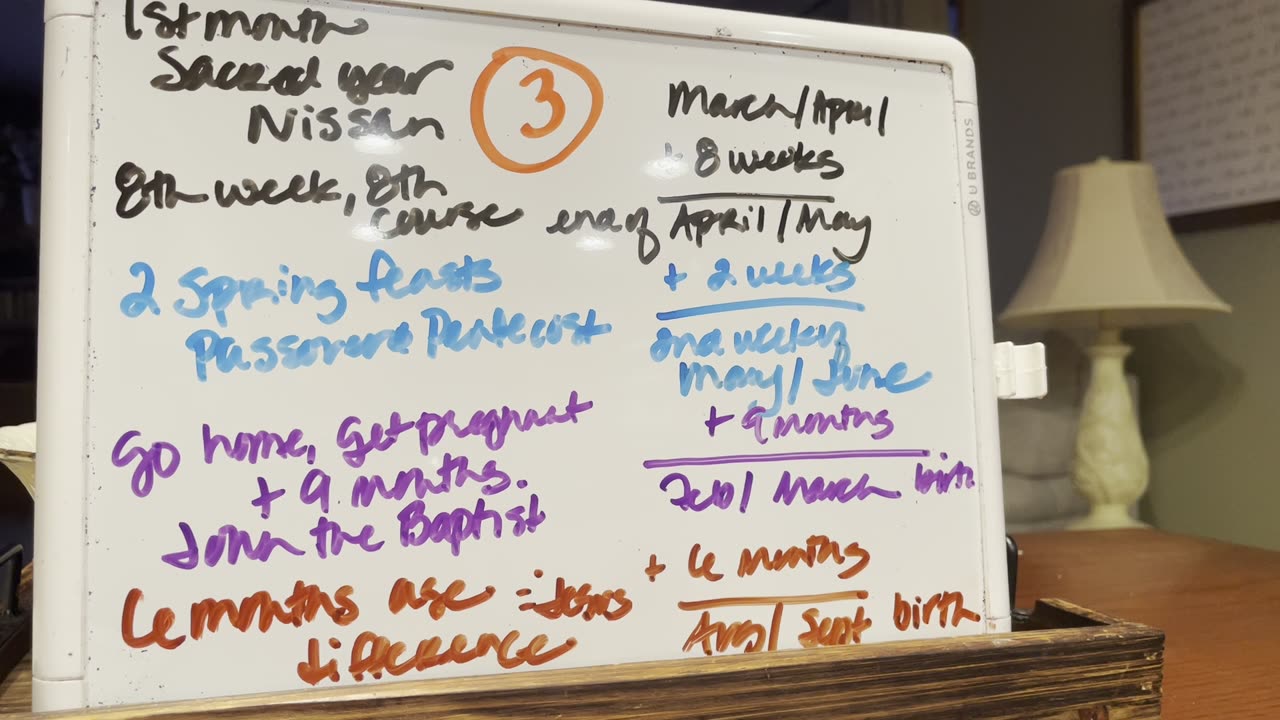 1st month
Sacred year
Nissan
3
March/April
+ 8 weeks
8th week, 8th
course
end of April/May
2 Spring feasts
Passover & Pentecost
+ 2 weeks
2nd week of
May/June
Go home, get pregnant
+ 9 months.
John the Baptist
+ 9 months
Feb/March birth
6 months age = Jesus
difference
+ 6 months
Aug/Sept birth
U BRANDS